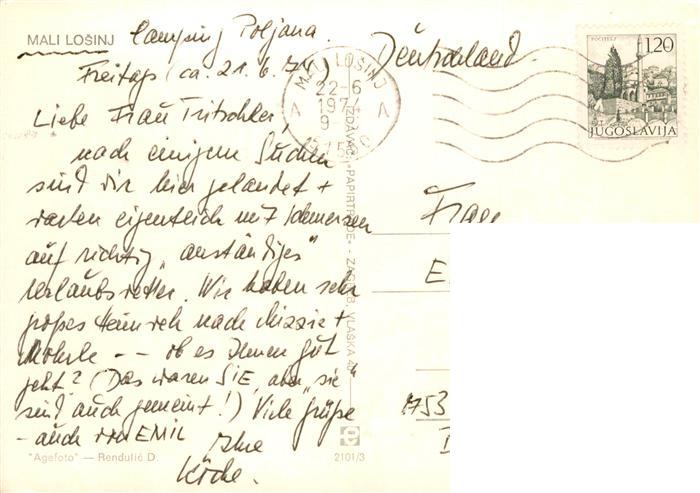 MALI LOŠINJ Camping Poljana
Freitag (ca. 21.6.74)
Liebe Frau Tritschker,
nach einigem Suchen
sind wir hier gelandet +
warten eigentlich mit Schmerzen
auf richtig „anständiges"
Urlaubswetter. Wir haben sehr
großes Heimweh nach Mizzie +
Mohrle -- ob es Ihnen gut
geht? (Das waren SIE, aber „sie"
sind auch gemeint!) Viele Grüße
- auch von EMIL
Ihre
Köche.
"Agefoto" — Rendulić D.
2101/3
Deutschland
MALI LOŠINJ
22-6
1974
9
A A
IZDAVAČ: "PAPIRTRADE" - ZAGREB, VLAŠKA
POČITELJ
1.20
JUGOSLAVIJA
Frau
E
753